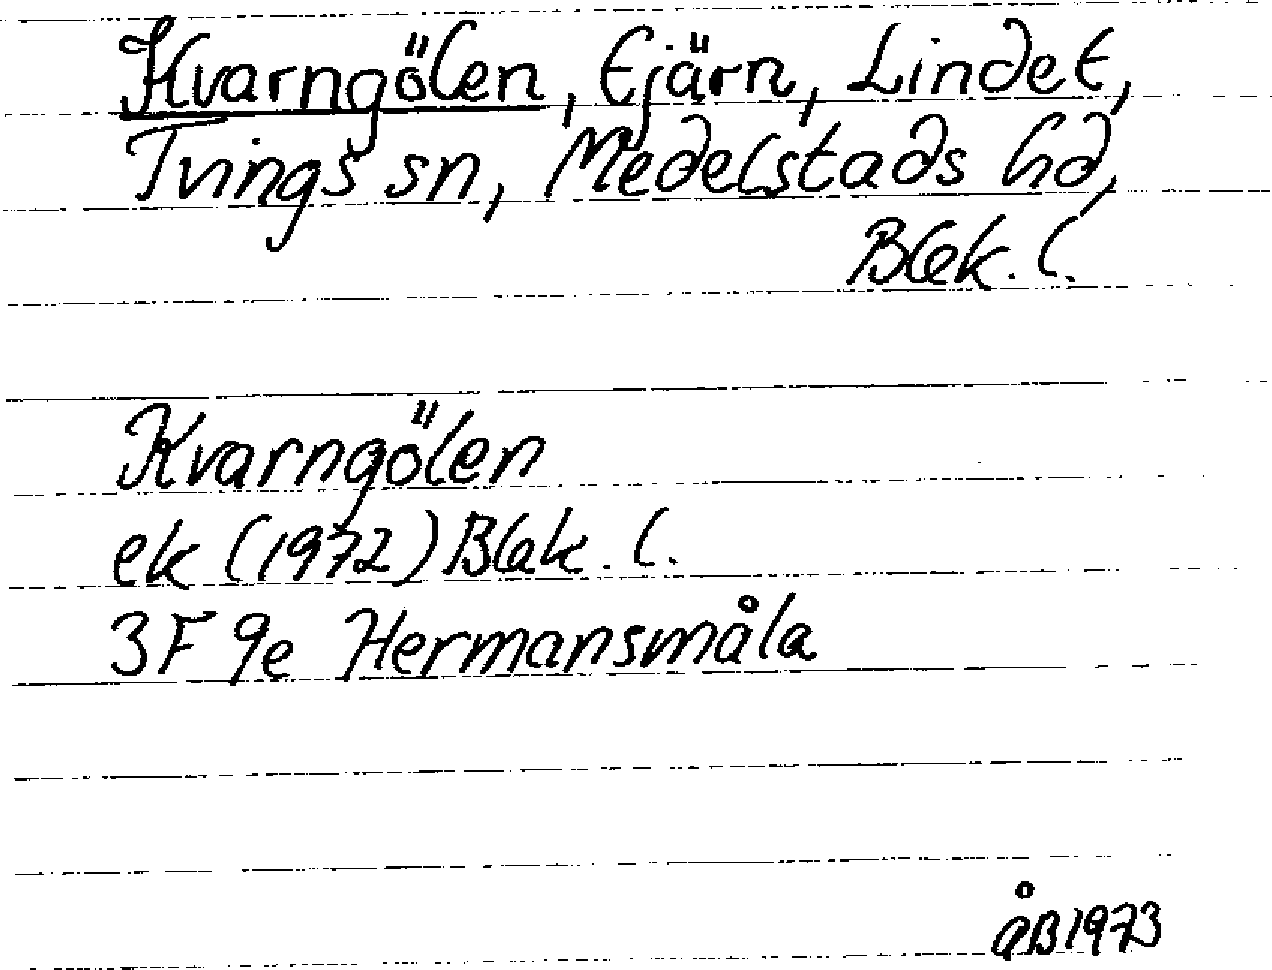 Kvarngölen, tjärn, Lindet,
Tvings sn, Medelstads hd,
Blek. l.
Kvarngölen
ek (1972) Blek. l.
3F 9e Hermansmåla
åB 1973